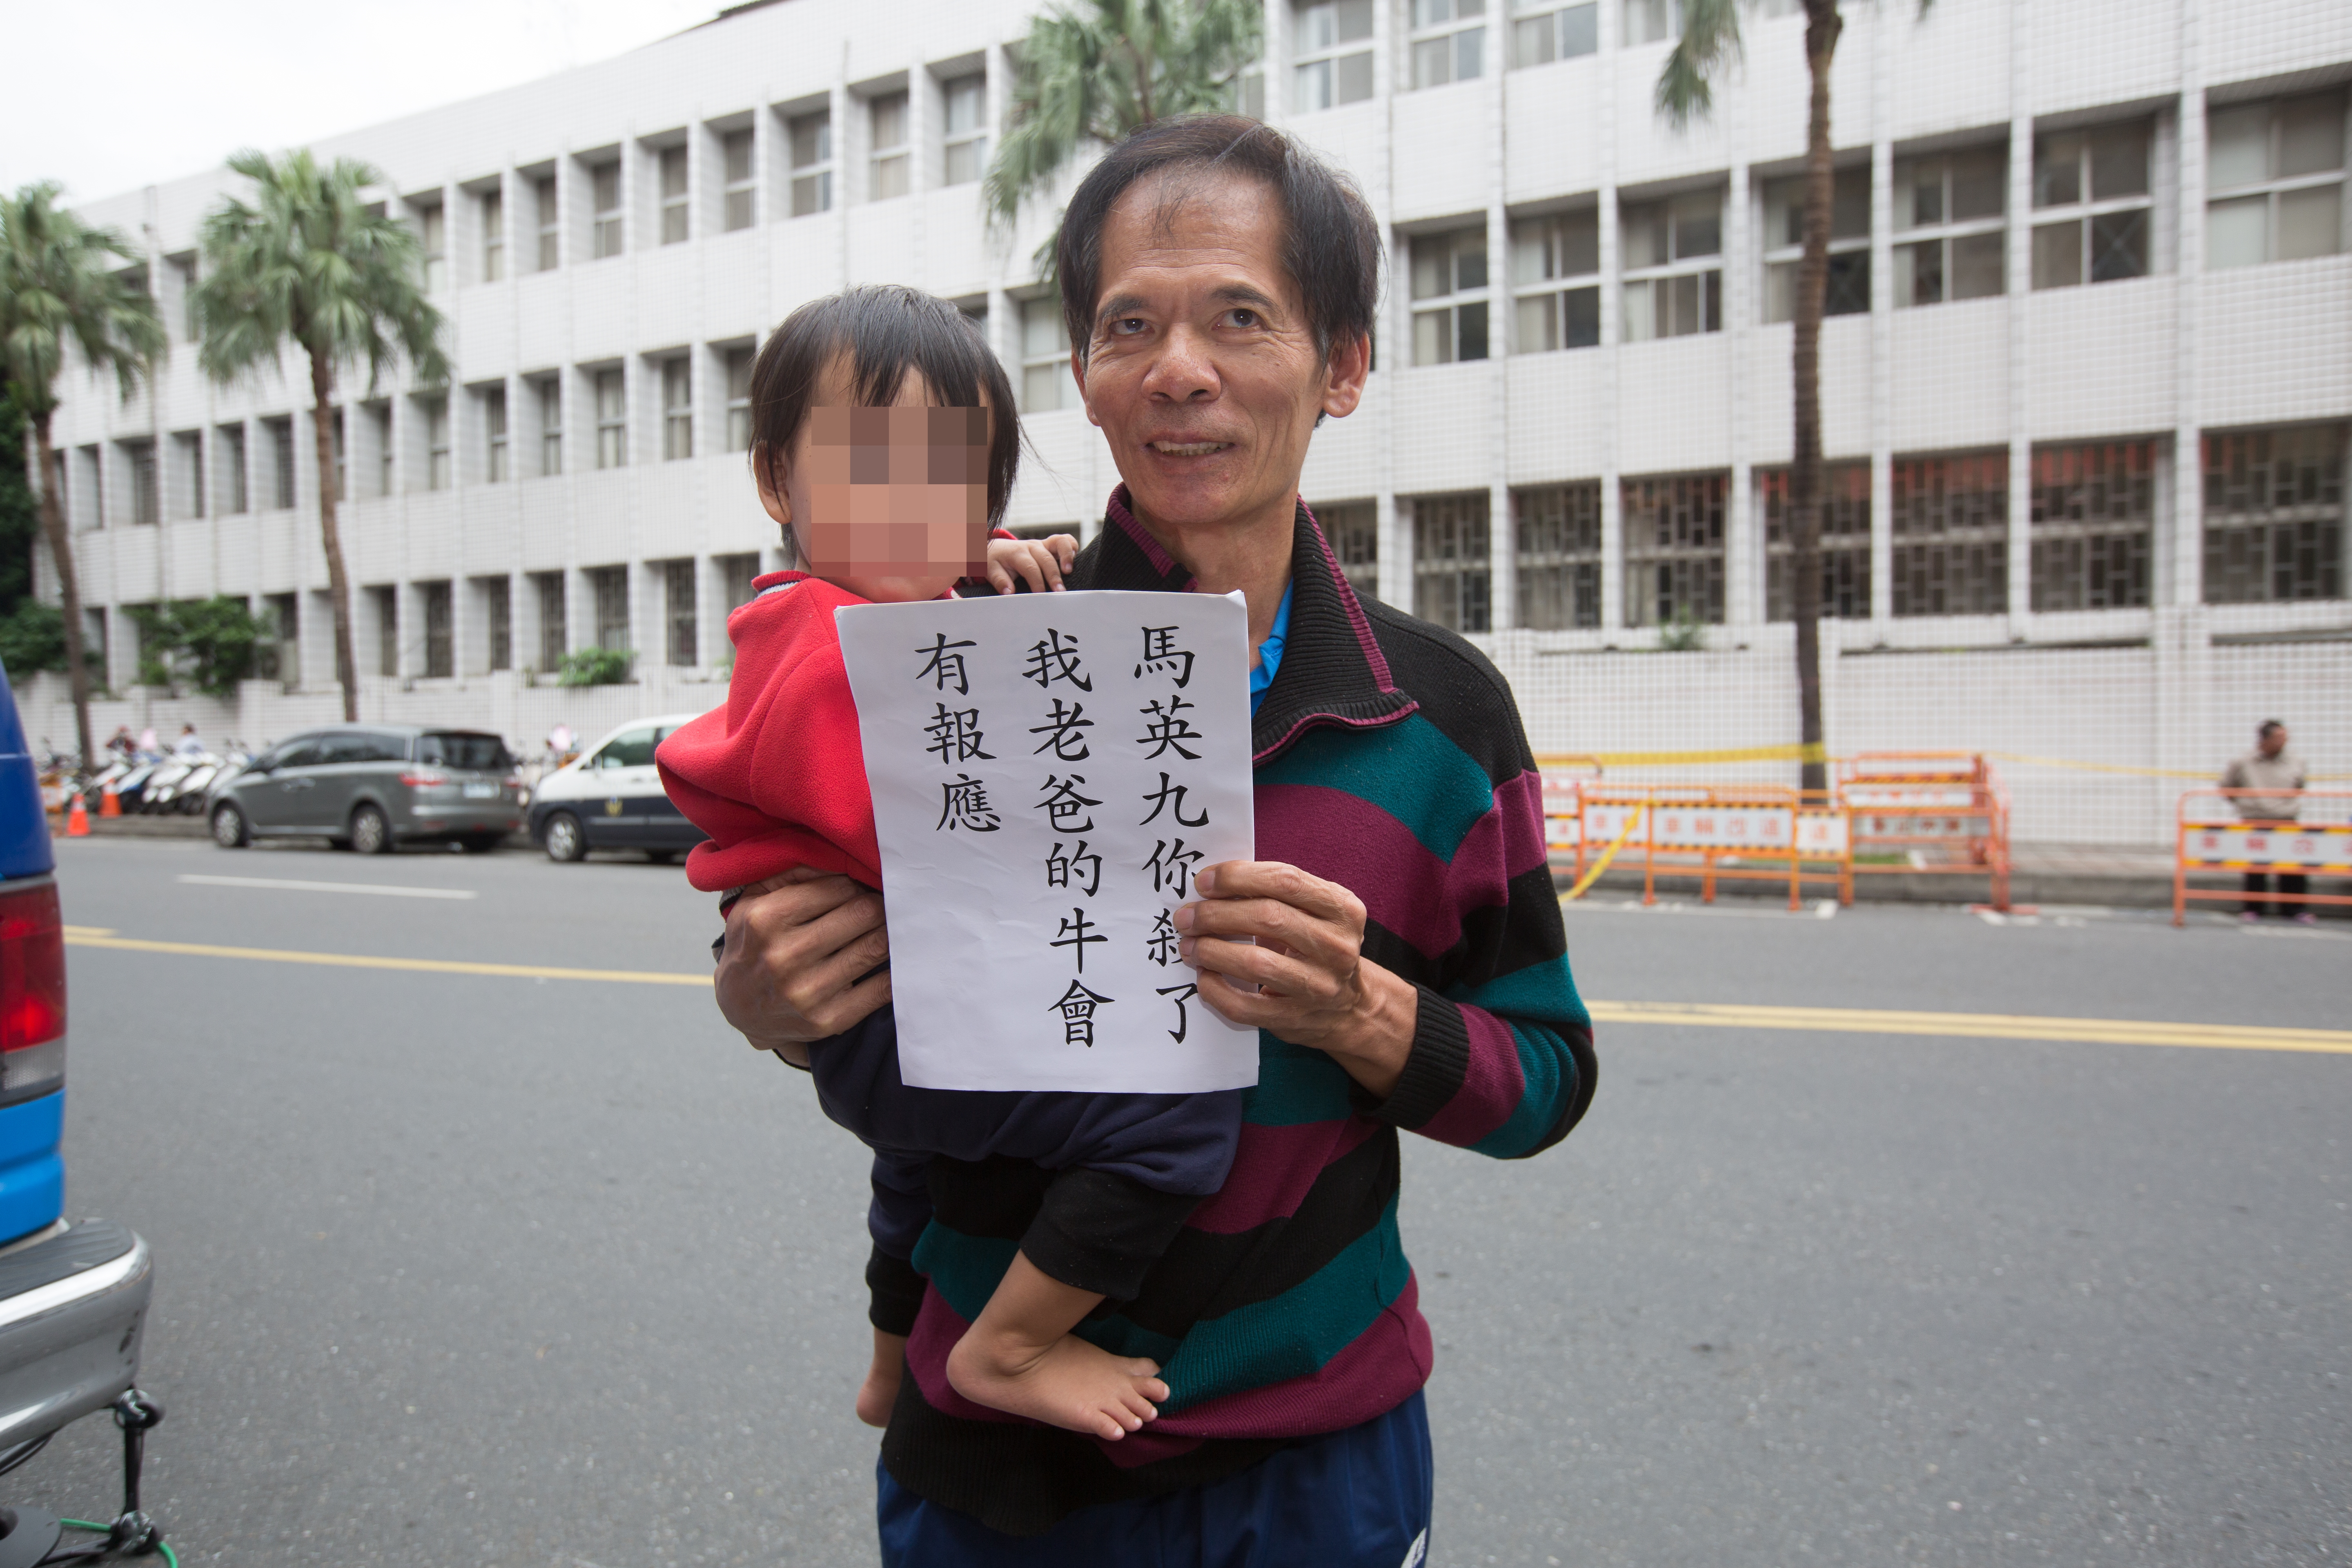 馬英九你殺了
我老爸的牛會
有報應